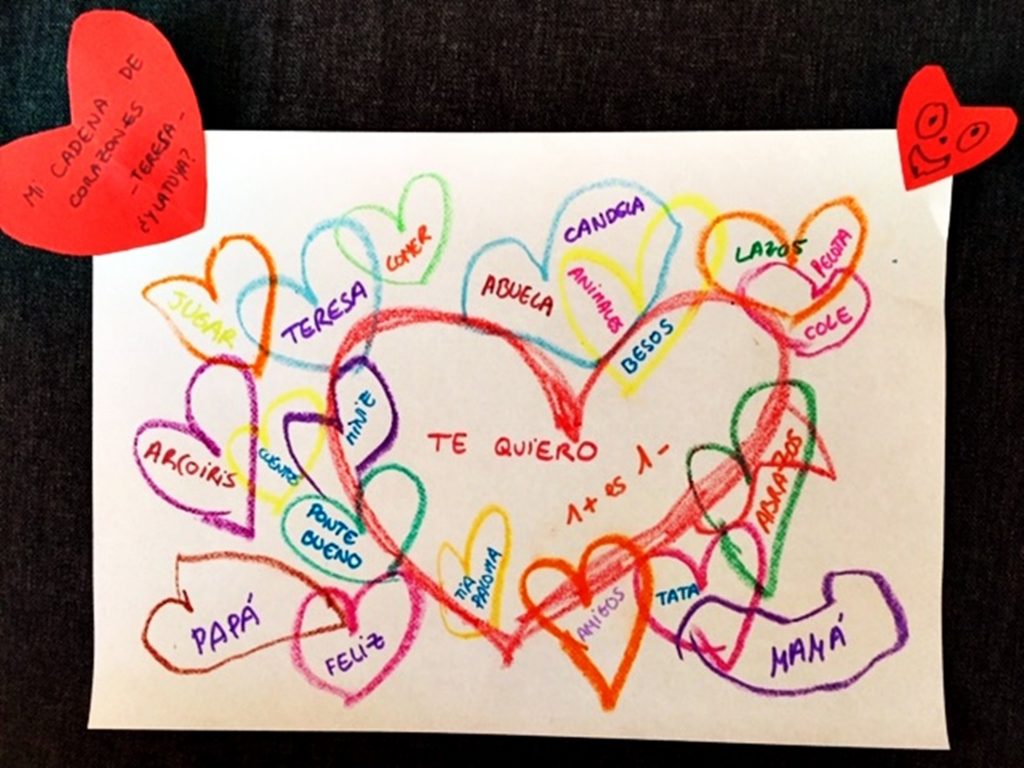 MI CADENA DE
CORAZONES
- TERESA -
¿Y LA TUYA?
COMER
CANDELA
JUGAR
TERESA
ABUELA
ANIMALES
BESOS
LAZOS
PELOTA
COLE
ARCOIRIS
CUENTOS
MINIE
TE QUIERO
1+ es 1-
ABRAZOS
PONTE
BUENO
PAPÁ
FELIZ
TIA
PALOMA
AMIGOS
TATA
MAMÁ